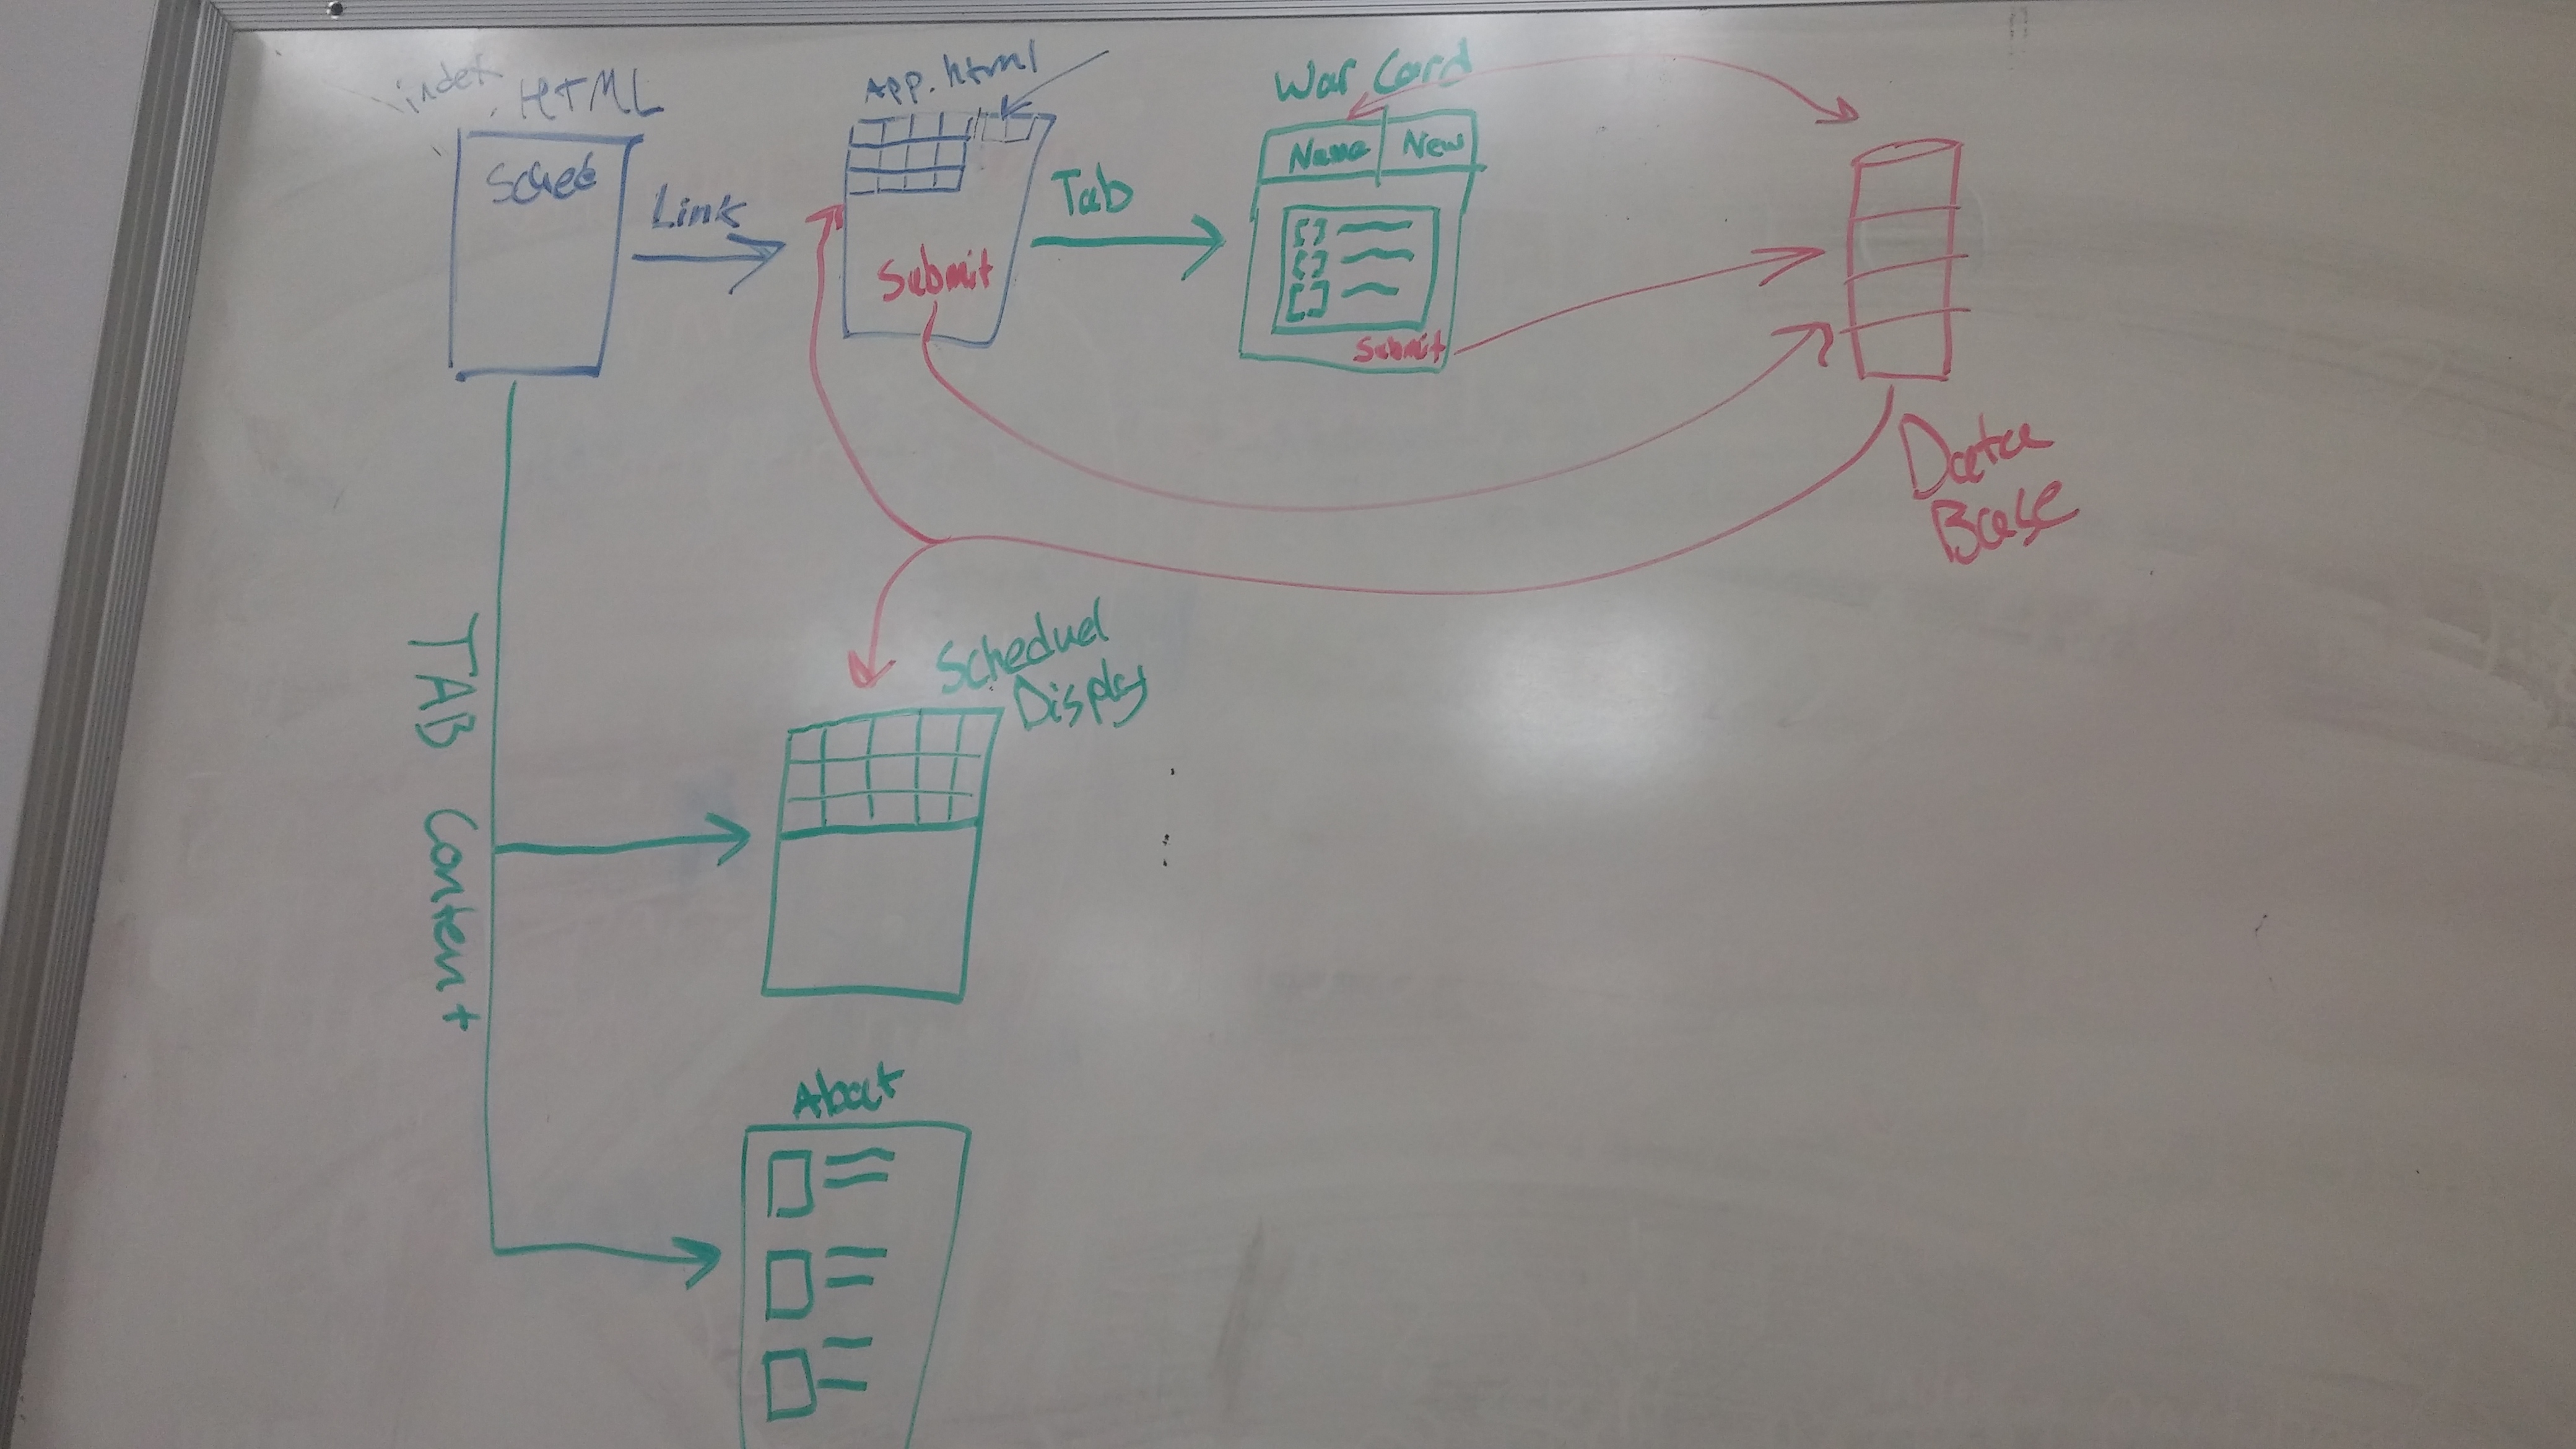 index
.HTML
Sched
Link
App.html
Submit
Tab
War Card
Name New
Submit
Data
Base
TAB Content
Scheduel
Display
About